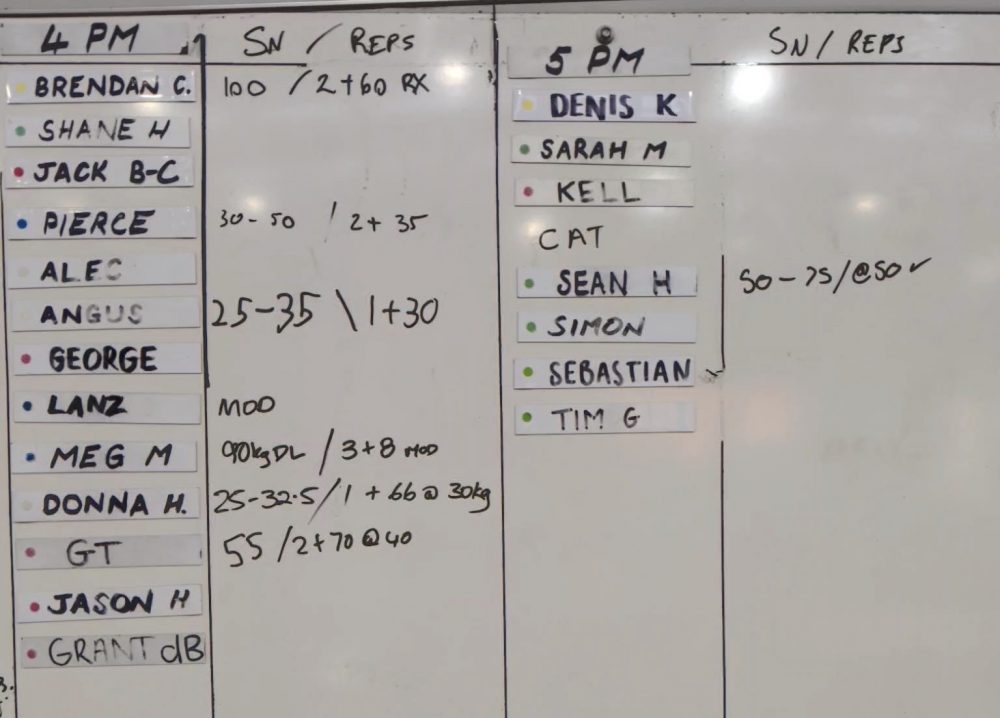 4 PM SN / REPS
BRENDAN C. 100 / 2+60 RX
SHANE H
JACK B-C
PIERCE 30-50 / 2+35
ALEC
ANGUS 25-35 \ 1+30
GEORGE
LANZ MOD
MEG M 90kg DL / 3+8 MOD
DONNA H. 25-32.5 / 1+66 @ 30kg
GT 55 / 2+70 @ 40
JASON H
GRANT dB
5 PM SN / REPS
DENIS K
SARAH M
KELL
CAT
SEAN H 50-75/@50 ✓
SIMON
SEBASTIAN
TIM G